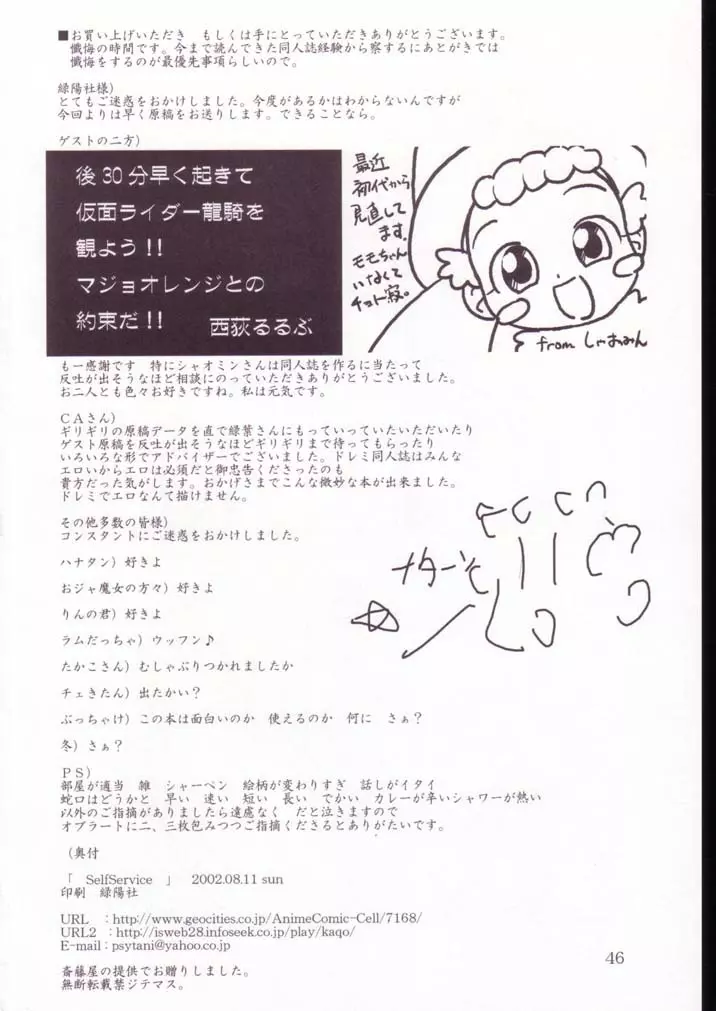 ■お買い上げいただき　もしくは手にとっていただきありがとうございます。
懺悔の時間です。今まで読んできた同人誌経験から察するにあとがきでは
懺悔をするのが最優先事項らしいので。
緑陽社様）
とてもご迷惑をおかけしました。今度があるかはわからないんですが
今回よりは早く原稿をお送りします。できることなら。
ゲストの二方）
後30分早く起きて
仮面ライダー龍騎を
観よう!!
マジョオレンジとの
約束だ!!　西荻るるぶ
最近
初代から
見直して
ます。
モモちゃん
いなくて
チョト寂。
from しゃおみん
も一感謝です　特にシャオミンさんは同人誌を作るに当たって
反吐が出そうなほど相談にのっていただきありがとうございました。
お二人とも色々お好きですね。私は元気です。
ＣＡさん）
ギリギリの原稿データを直で緑葉さんにもっていっていたいただいたり
ゲスト原稿を反吐が出そうなほどギリギリまで待ってもらったり
いろいろな形でアドバイザーでございました。ドレミ同人誌はみんな
エロいからエロは必須だと御忠告くださったのも
貴方だった気がします。おかげさまでこんな微妙な本が出来ました。
ドレミでエロなんて描けません。
その他多数の皆様）
コンスタントにご迷惑をおかけしました。
ハナタン）好きよ
おジャ魔女の方々）好きよ
りんの君）好きよ
ラムだっちゃ）ウッフン♪
たかこさん）むしゃぶりつかれましたか
チェきたん）出たかい？
ぶっちゃけ）この本は面白いのか　使えるのか　何に　さぁ？
冬）さぁ？
ＰＳ）
部屋が適当　雑　シャーペン　絵柄が変わりすぎ　話しがイタイ
蛇口はどうかと　早い　速い　短い　長い　でかい　カレーが辛いシャワーが熱い
以外のご指摘がありましたら遠慮なく　だと泣きますので
オブラートに二、三枚包みつつご指摘くださるとありがたいです。
（奥付
「　SelfService　」　2002.08.11 sun
印刷　緑陽社
URL　：http://www.geocities.co.jp/AnimeComic-Cell/7168/
URL2　：http://isweb28.infoseek.co.jp/play/kaqo/
E-mail：psytani@yahoo.co.jp
斎藤屋の提供でお贈りしました。
無断転載禁ジテマス。
46